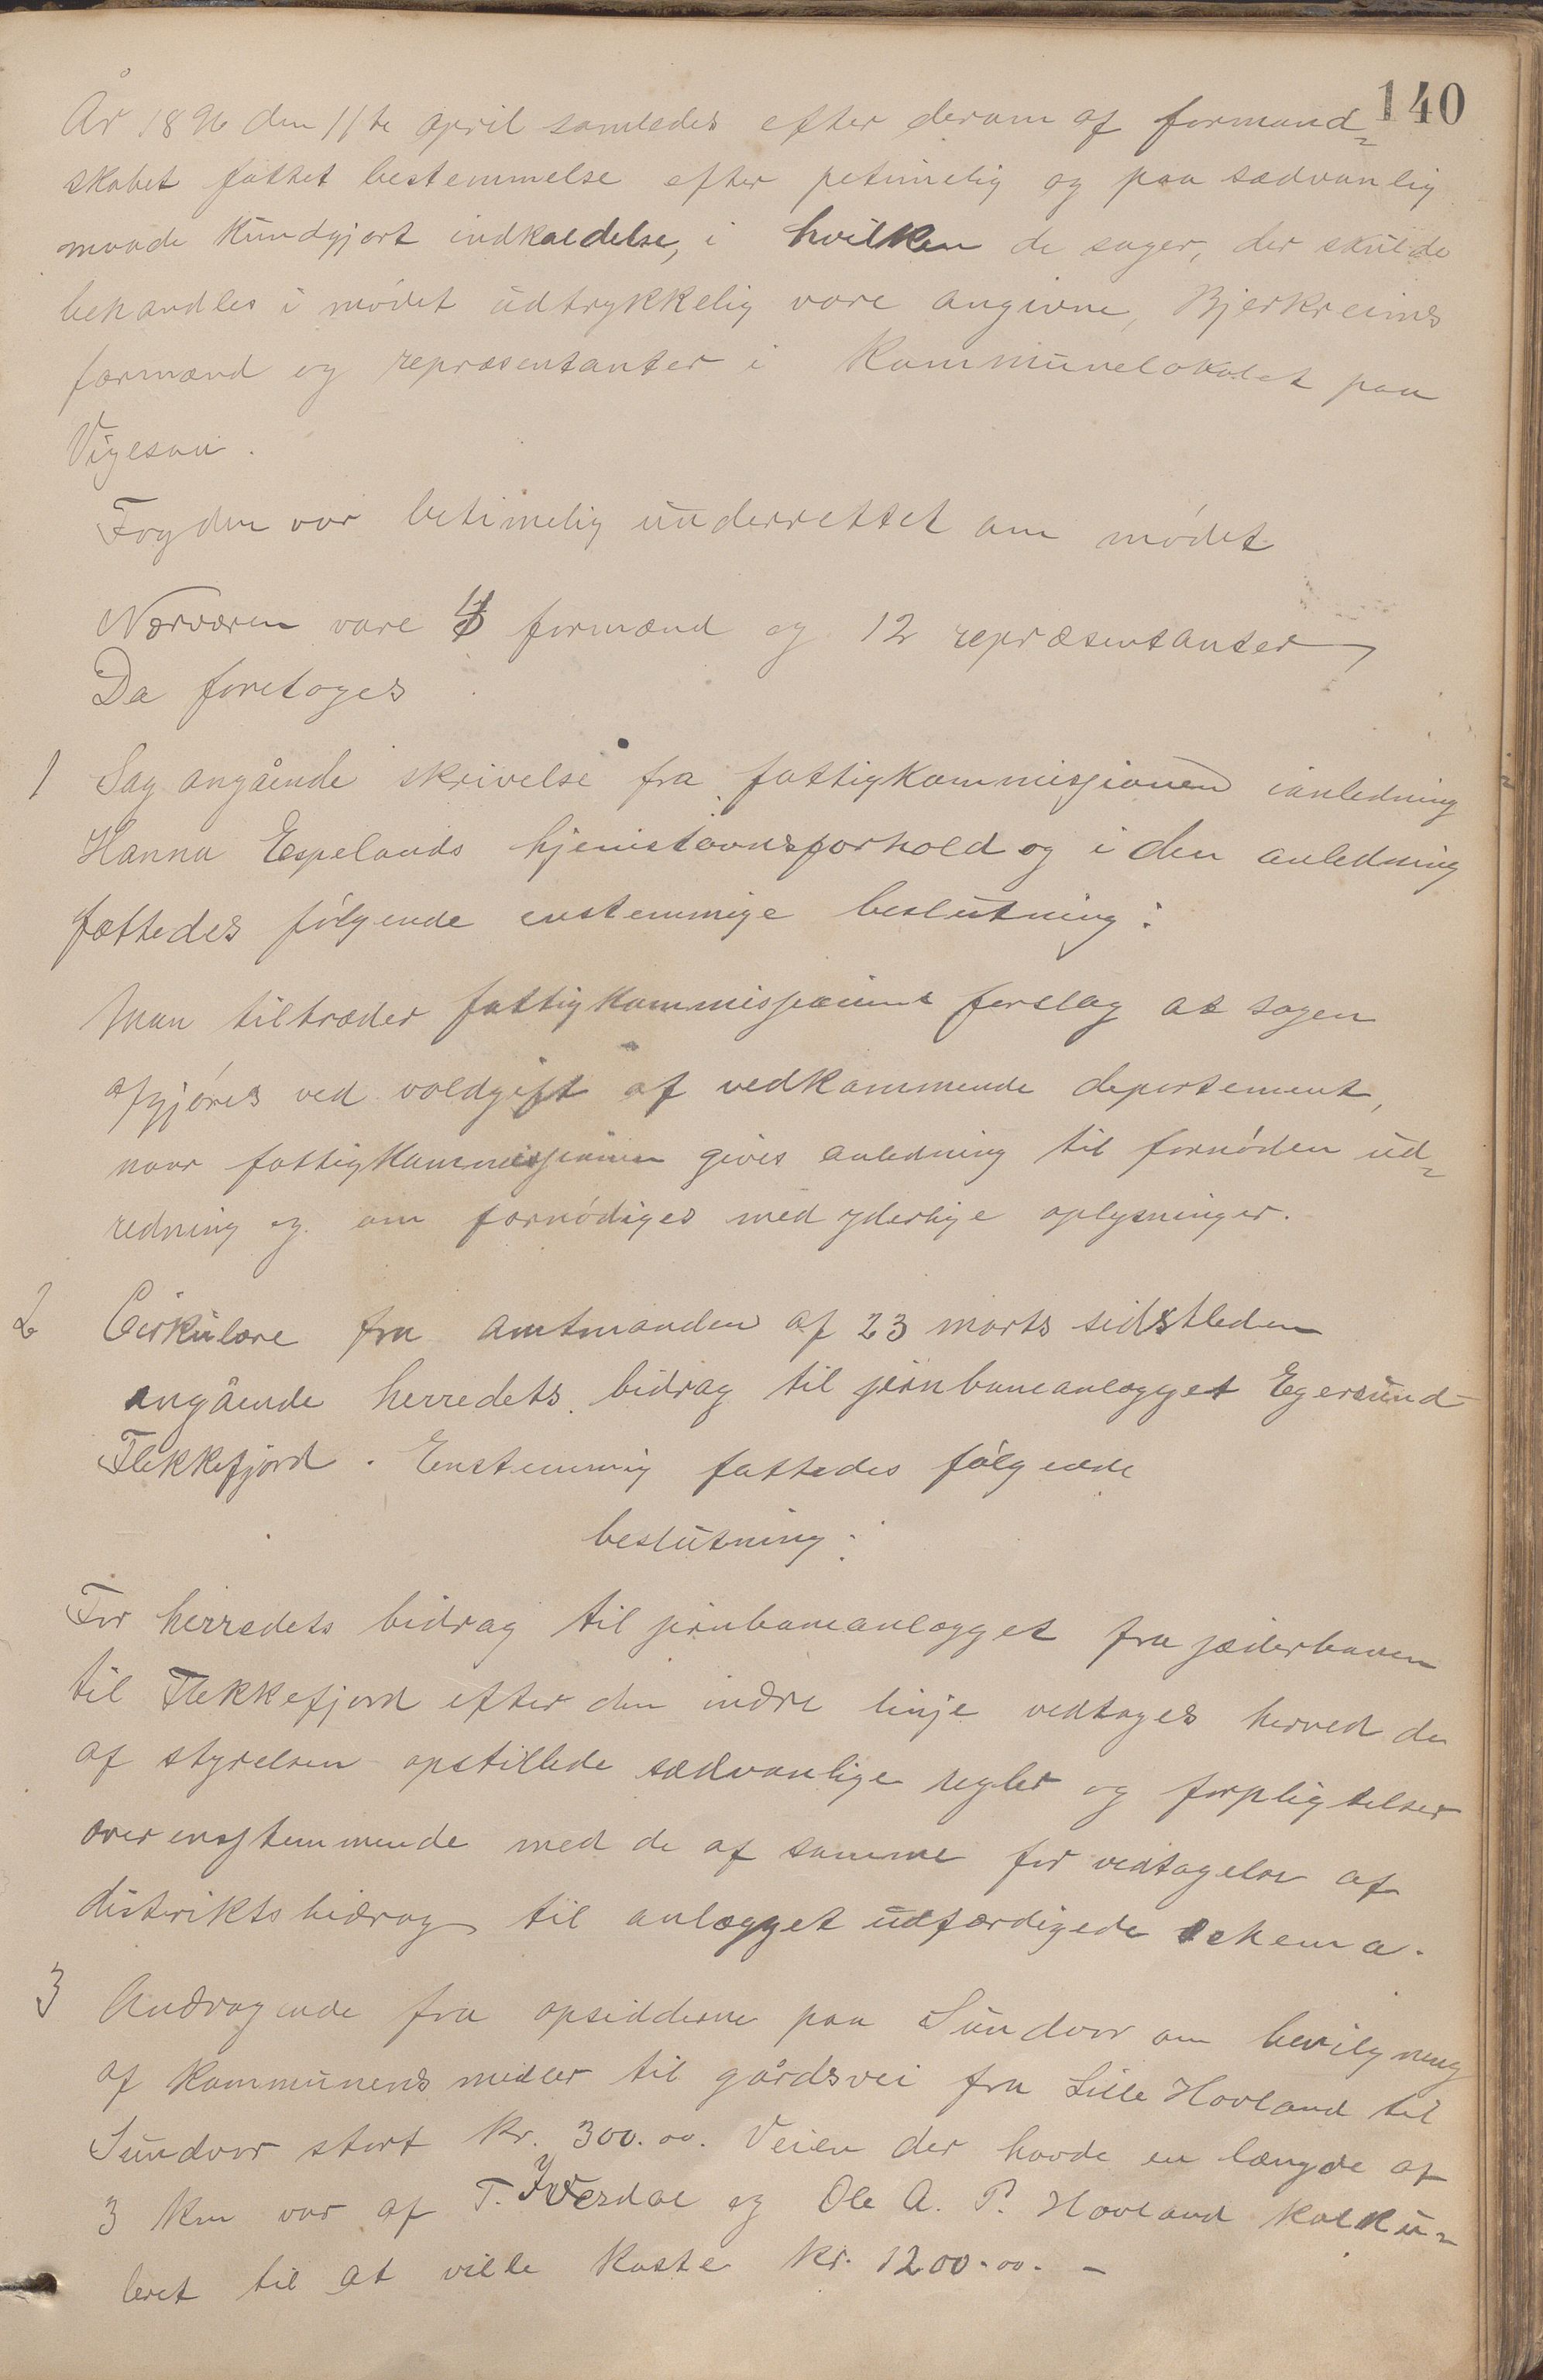 140
År 1896 den 11te april samledes efter derom af formand-
skabet fattet bestemmelse efter petimelig og paa sædvanlig
maade Kundgjort indkaldelse, i hvilken de sager, der skulde
behandles i mødet udtrykkelig vare angivne, Bjerkreims
formænd og repræsentanter i Kommunelokalet paa
Vigesaa.
Fogden var betimelig underrettet om mødet
Nærværen vare 4 formænd og 12 repræsentanter,
Da foretoges
1 Sag angående skrivelse fra fattigkommissjonen ianledning
Hanna Espelands hjemstavnsforhold og i den anledning
fattedes følgende enstemmige beslutning:
Man tiltræder fattigkommissjonens forslag at sagen
afgjøres ved voldgift af vedkommende departement,
naar fattigkommissjonen gives anledning til fornøden ud-
redning og om fornødiges med yderlige oplysninger.
2 Cirkulære fra amtmanden af 23 marts sidstleden
angående herredets bidrag til jernbaneanlægget Egersund-
Flekkefjord. Enstemmig fattedes følgende
beslutning:
For herredets bidrag til jernbaneanlægget fra jæderbanen
til Flekkefjord efter den indre linje vedtages herved de
af styrelsen opstillede sædvanlige regler og forpligtelser
overensstemmende med de af samme for vedtagelse af
distriktsbidrag til anlægget udfærdigede schema.
3 Andragende fra opsidderne paa Sundvor om bevilgning
af Kommunens midler til gårdsvei fra Lille Hovland til
Sundvor stort kr. 300.00. Veien der havde en længde af
3 km var af T. Iversdal og Ole A. P. Hovland kalku-
leret til at ville koste kr. 1200.00. -